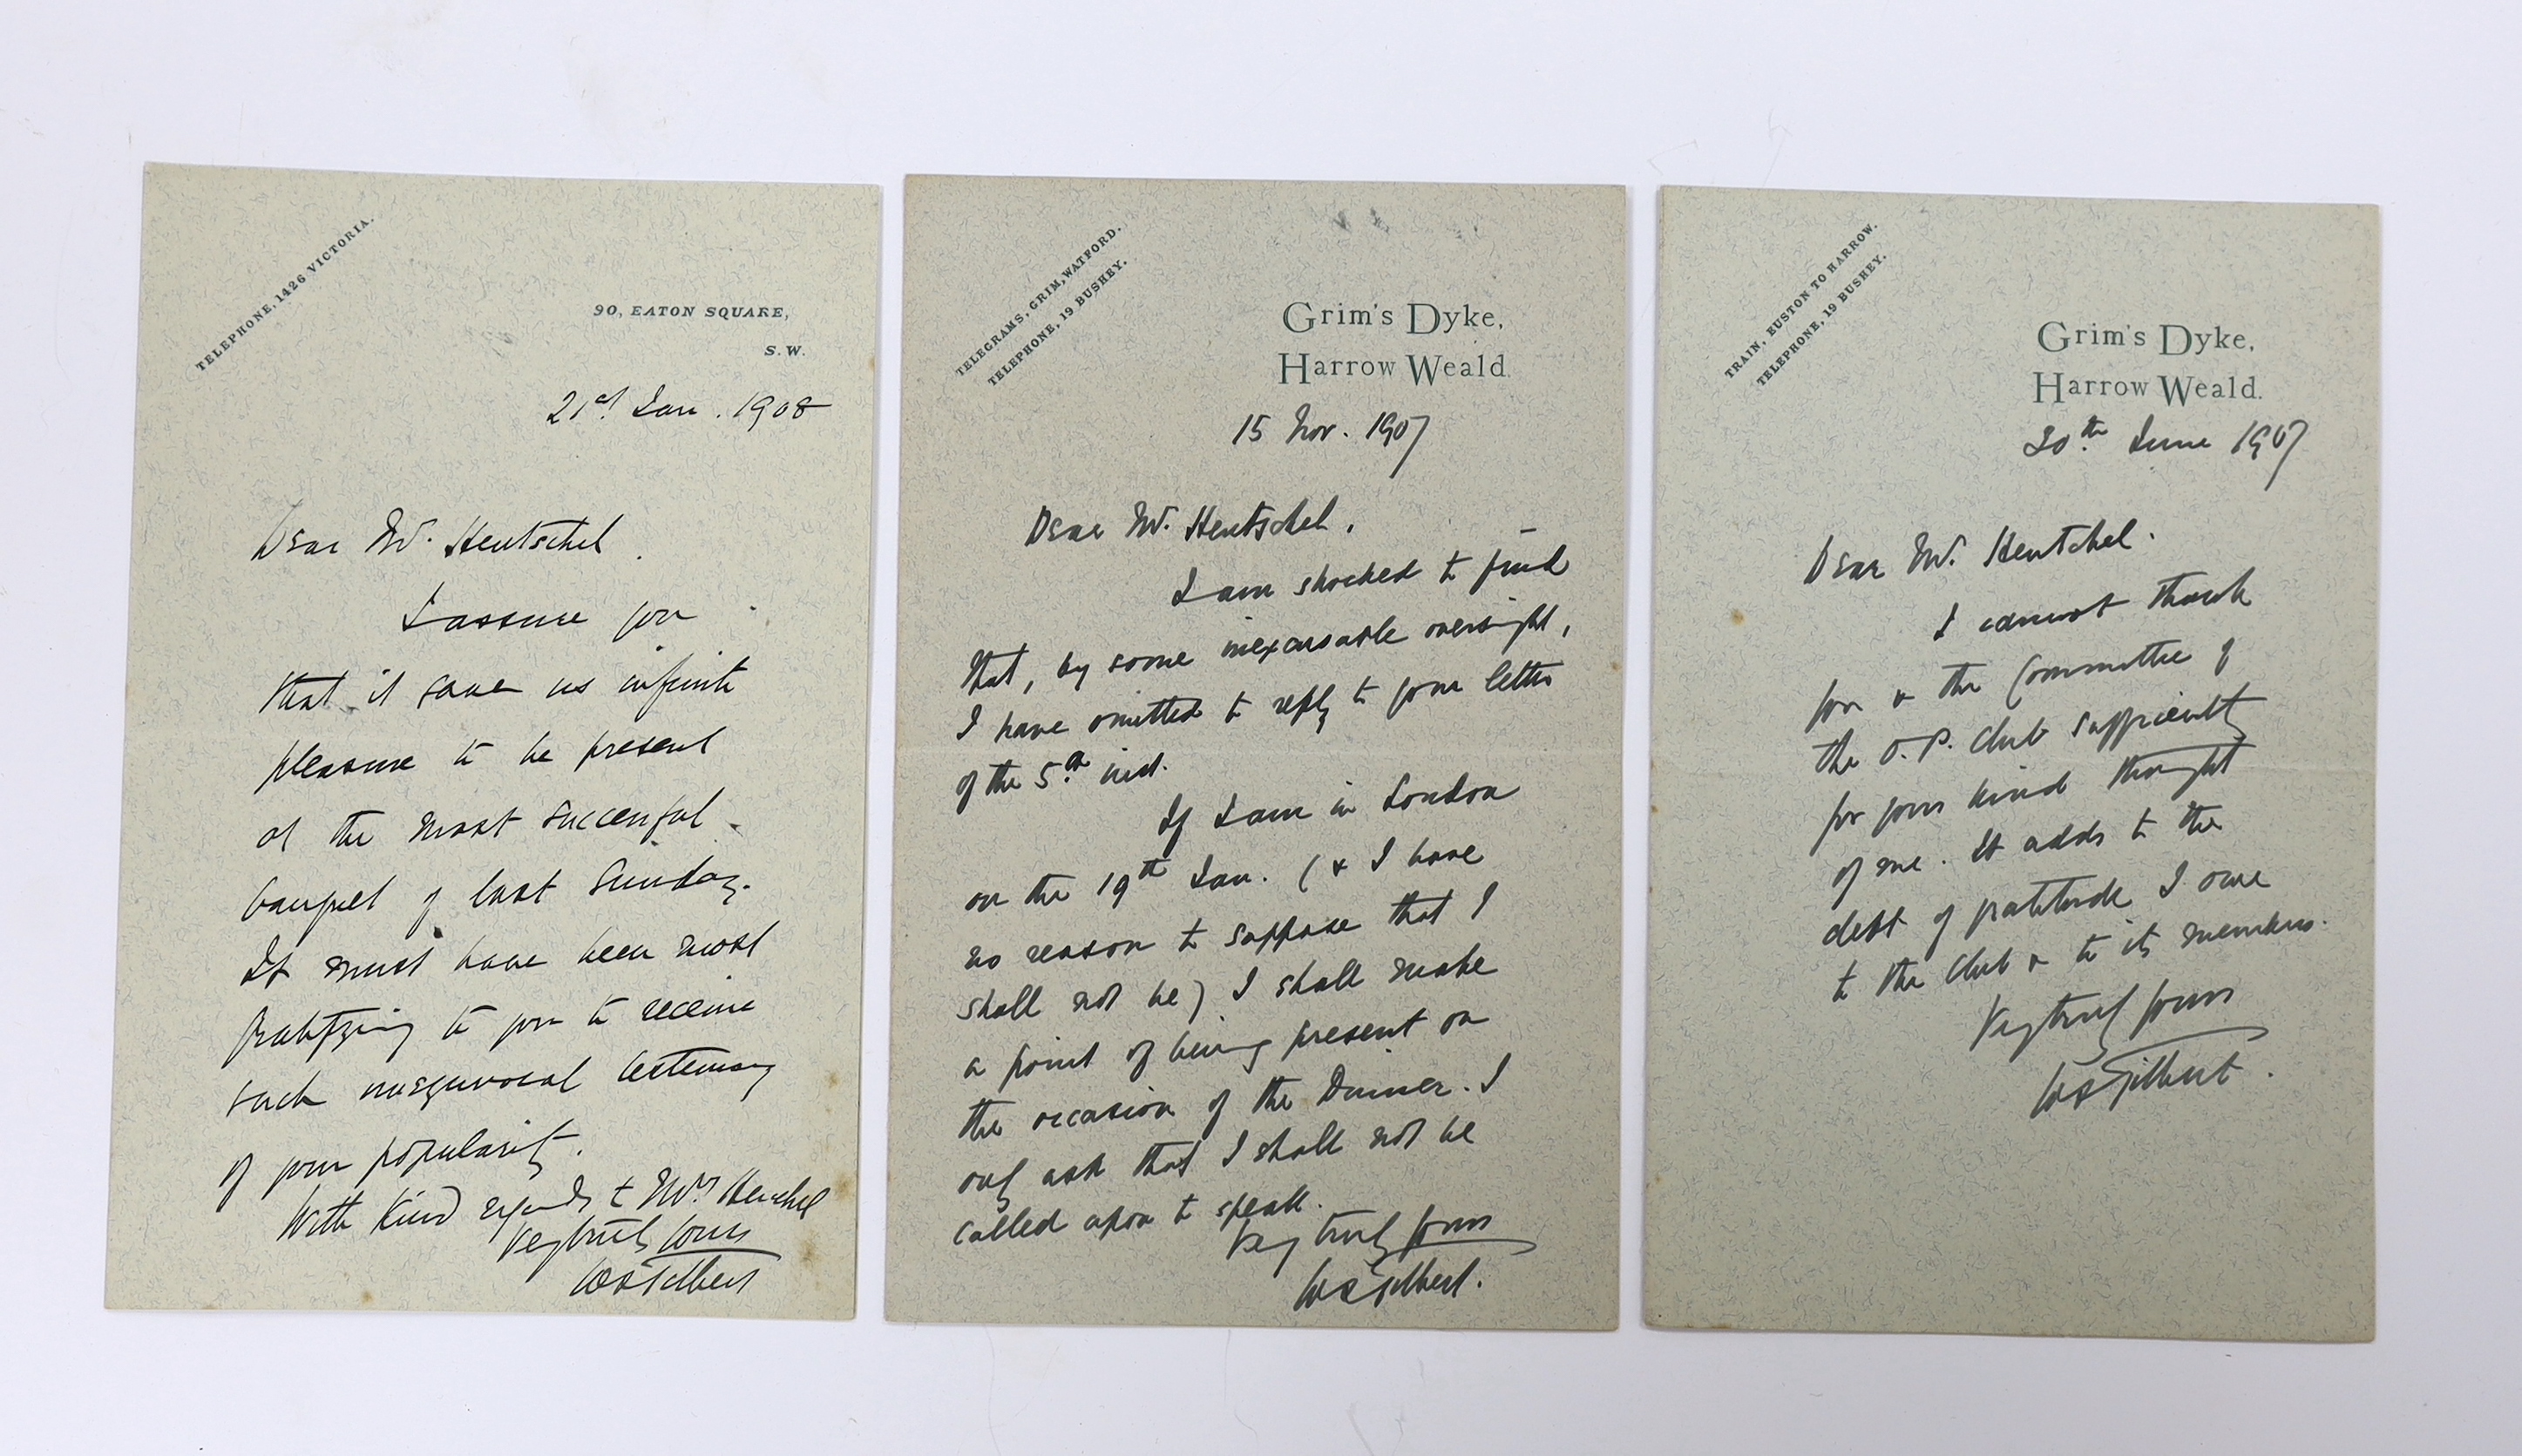 TELEPHONE, 1426 VICTORIA.
90, EATON SQUARE,
S.W.
21st Jan. 1908
Dear Mr. Hentschel.
I assure you
that it gave us infinite
pleasure to be present
at the most successful
banquet of last Sunday.
It must have been most
gratifying to you to receive
such unequivocal testimony
of your popularity.
With kind regards to Mrs Henschel
Very truly yours
WSGilbert
TELEGRAMS, GRIM, WATFORD.
TELEPHONE, 19 BUSHEY.
Grim's Dyke,
Harrow Weald.
15 Nov. 1907
Dear Mr. Hentschel.
I am shocked to find
that, by some inexcusable oversight,
I have omitted to reply to your letter
of the 5th inst.
If I am in London
on the 19th Jan. (& I have
no reason to suppose that I
shall not be) I shall make
a point of being present on
the occasion of the Dinner. I
only ask that I shall not be
called upon to speak.
Very truly yours
WSGilbert.
TRAIN, EUSTON TO HARROW.
TELEPHONE, 19 BUSHEY.
Grim's Dyke,
Harrow Weald.
th June 1907
Dear Mr. Hentchel.
I cannot thank
you & the Committee of
the O.P. Club sufficiently
for your kind thought
of me. It adds to the
debt of gratitude I owe
to the Club & to its members.
Very truly yours
WSGilbert.